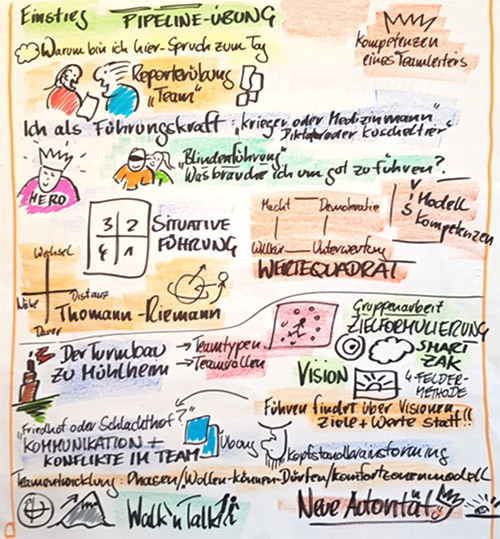 Einstieg PIPELINE-ÜBUNG
Warum bin ich hier-Spruch zum Tag
Kompetenzen
eines Teamleiters
Reporterübung
"Team"
Ich als Führungskraft: "Krieger oder Medizinmann"
Diktator oder Kuscheltier"
HERO
"Blindenführung"
Was brauche ich um gut zu führen?
3 2
4 1
SITUATIVE
FÜHRUNG
Macht Demokratie
Willkür Unterwerfung
WERTEQUADRAT
Modell
Kompetenzen
Wechsel
Nähe Distanz
Dauer
Thomann-Riemann
Der Turmbau
zu Mühlheim
→Teamtypen
→Teamrollen
Gruppenarbeit
ZIELFORMULIERUNG
SMART
ZAK
VISION
4-FELDER-
METHODE
Führen findet über Visionen
Ziele + Werte statt!!
"Friedhof oder Schlachthof?"
KOMMUNIKATION +
KONFLIKTE IM TEAM
Übung
Kopfstandbrainstorming
Teamentwicklung: Phasen/Wollen-Können-Dürfen/Komfortzonenmodell
Walk'n Talk
Neue Autorität